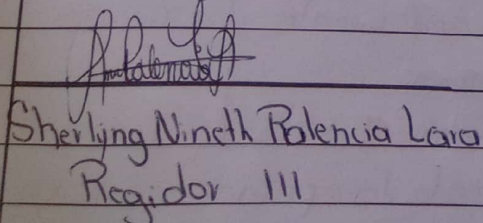 Sherlyng Nineth Palencia Lara
Regidor III